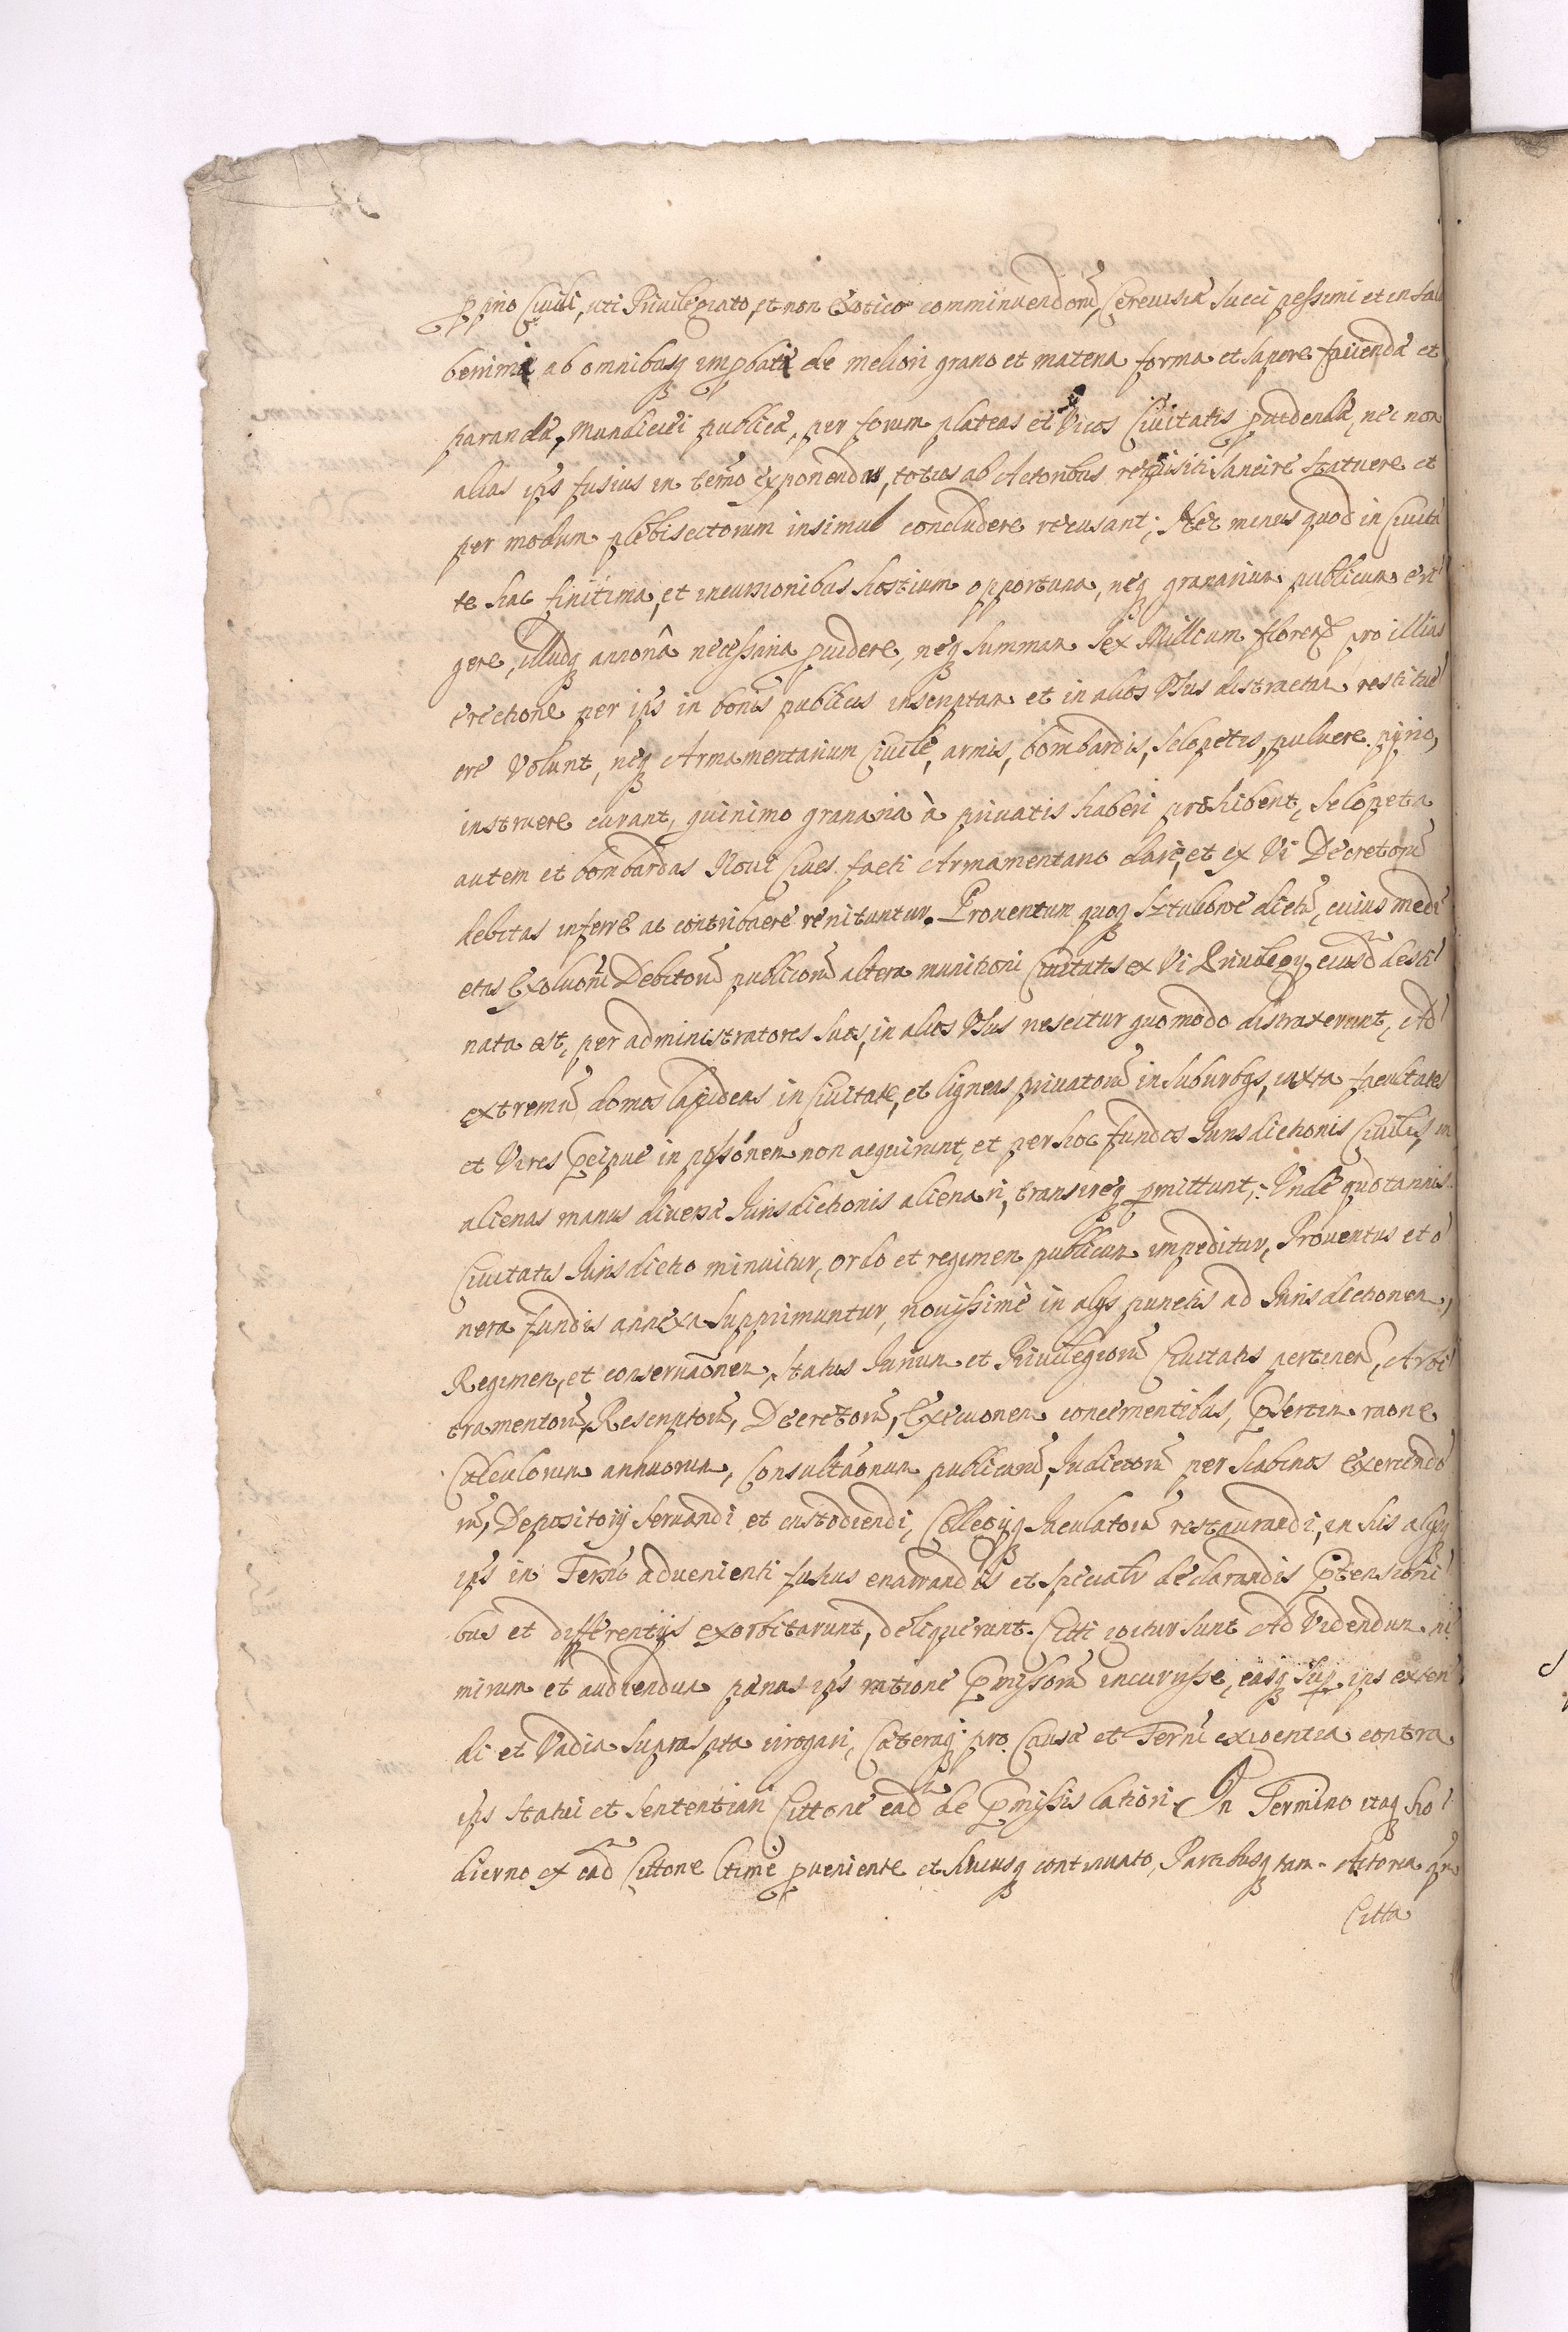 ppino Civili, uti Privilegiato, et non Exotico comminuendorũ, Cerevisiæ Succi pessimi et insalu
berrimæ ab omnibusq improbatæ de meliori grano et materia forma et sapore facienda et
paranda, Mundiciei publicæ, per forum plateas et Vicos Civitatis pvidenda, nec non
alias ips fusius in termo exponendas, toties ab Actoribus requisiti Sancire Statuere et
per modum plebiscitorum insimul concludere recusant; Nec minus quod in Civita
te hac finitima, et incursionibus hostium opportuna, neq granarium publicum eri
gere, illudq annonâ necessaria pvidere, neq summam sex Millium floren pro illius
erectione per ips in bonis publicis inscriptam et in alios Usus distractam restitue
ere Volunt, neq Armamentarium Civile, armis, bombardis, Sclopetis, pulvere pyrio,
instruere curant, quinimo granaria à privatis haberi prohibent, Sclopeta
autem et bombardas Novi Cives facti Armamentario dare, et ex Vi Decretorũ
debitas inferre ac contribuere renituntur. Proventum quoq Sztukowe dictũ, cuius medi
etas Exoluõni Debitorũ publicorũ altera munitioni Civitatis ex Vi Privilegy eiusd desti
nata est, per administratores suos, in alios Usus nescitur quomodo distraxerunt, Ad
extremũ domos lapideas in Civitate, et ligneas privatorũ in Suburbys, iuxta facultates
et Vires pcipue in possonem non acquirunt, et per hoc fundos Iurisdictionis Civilis in
alienas manus diversæ Iurisdictionis alienari, transireq pmittunt; Unde quotannis
Civitatis Iurisdictio minuitur, ordo et regimen publicum impeditur, Proventus et o
nera fundis annexa supprimuntur, novissimè in alys punctis ad Iurisdictionem,
Regimen, et conservaõnem, Status Iurium et Privilegiorũ Civitatis pertinen, Arbi
tramentorũ, Rescriptorũ, Decretorũ, Execuonem concernentibus, psertim raone
Calculorum annuorum, Consultaõnum publicarũ, Iudiciorũ per Scabinos exercendo
rũ, Depositorij Servandi et custodiendi, Collegijq Iaculatorũ restaurandi, in his alysq
ips in Termo advenienti fusius enarrandis et specialr declarandis ptensioni
bus et differentijs exorbitarunt, deliquerunt. Citti igitur sunt Ad Videndum ni
mirum et audiendum pænas ips ratione pmissorũ incurrisse, easq sup ips exten
di et Vadia suprascpta irrogari, Cæteraq pro Causæ et Termi exigentia contra
ips statui et sententiari Cittone ead de pmissis latiori. In Termino itaq ho
dierno ex ead Cittone ltime pveniente et hucusq continuato, Partibusq tam Actorea qm
Citta